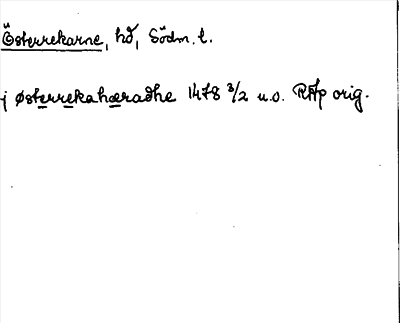 Österrekarne, hd, Södm. l.
j østerrekahæradhe 1478 3/2 u.o. RAp orig.